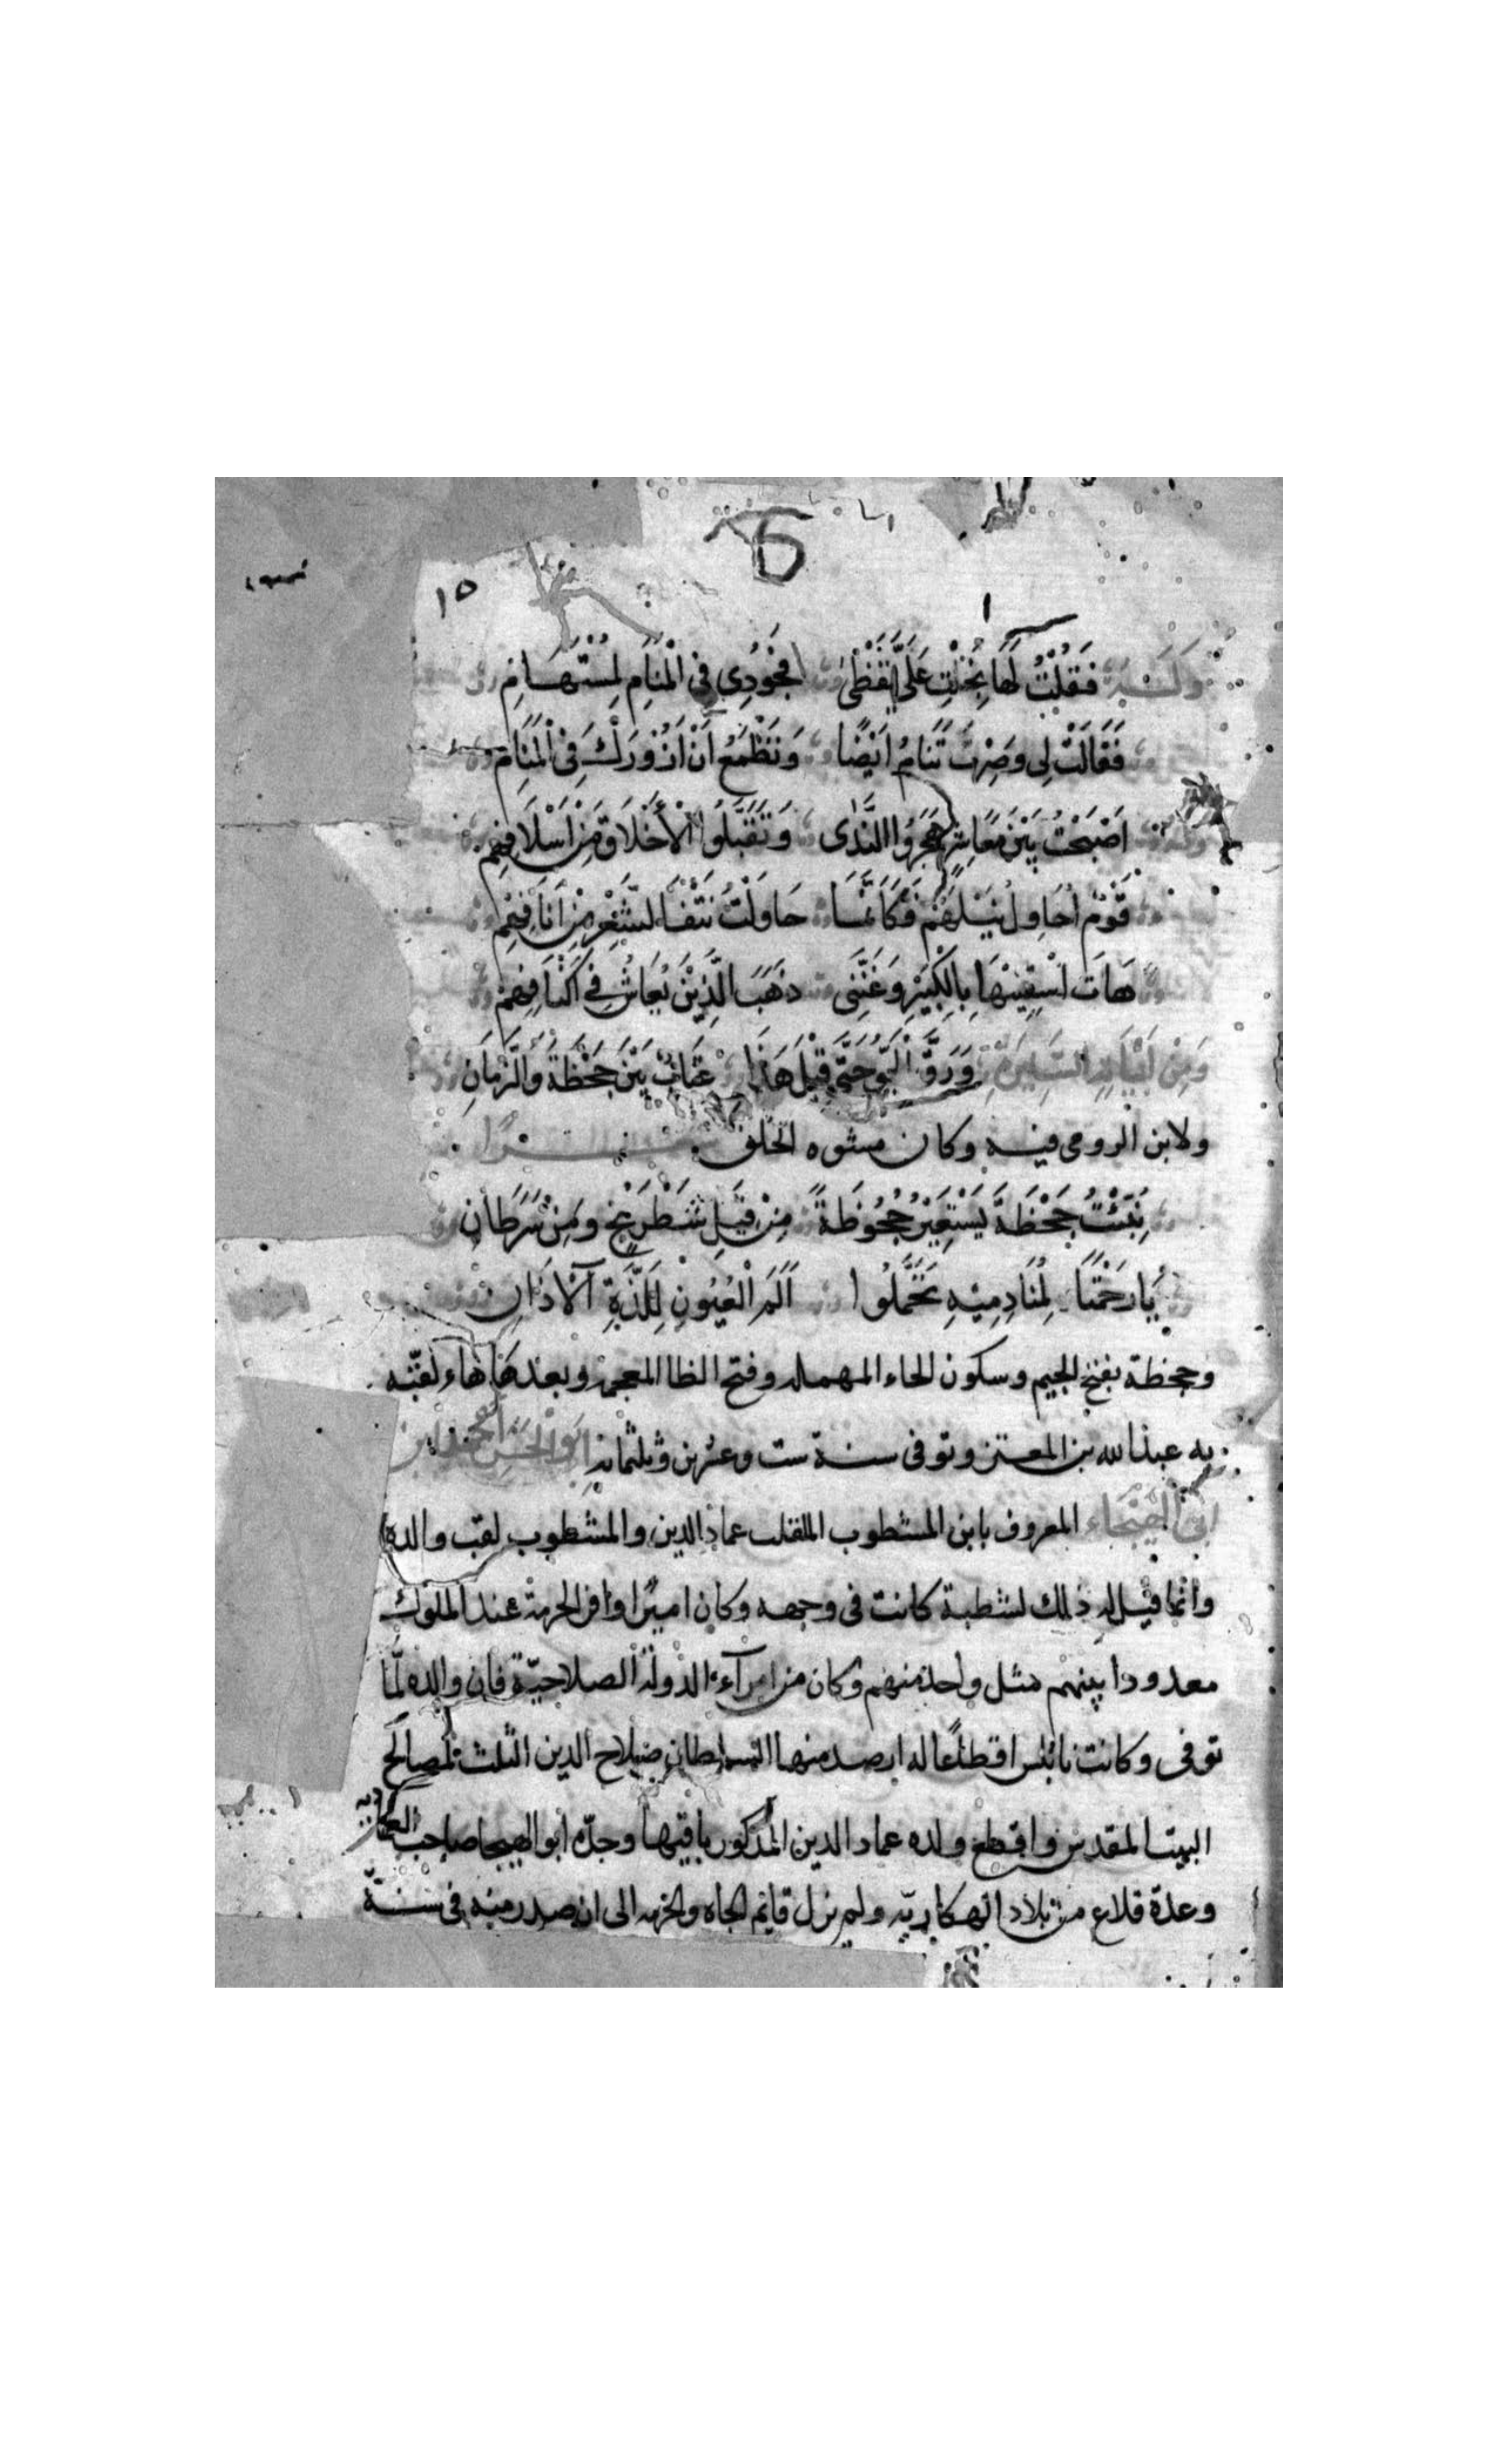 ١٥
وَلَــهُ فَقُلْتُ لَهَا بَخِلْتِ عَلَيَّ يَقْظٰى فَجُودِى فِى الْمَنَامِ لِمُسْتَهَامِ
فَقَالَتْ لِى وَصِرْتَ تَنَامُ اَيْضًا وَتَطْمَعُ اَنْ اَزُوْرَكَ فِى الْمَنَامِ
وله اَصْبَحْتُ بَيْنَ مَعَاشِرٍ هَجَرُوا النَّدٰى وَتَقَبَّلُوا الْأَخْلَاقَ مِنْ اَسْلَافِهِمْ
قَوْمٌ اُحَاوِلُ نَيْلَهُمْ فَكَأَنَّمَا حَاوَلْتُ نَتْفَ الشَّعْرِ مِنْ اَنَافِهِمْ
هَاتِ اسْقِنِيْهَا بِالْكَبِيْرِ وَغَنِّنِى ذَهَبَ الَّذِيْنَ يُعَاشُ فِى اَكْنَافِهِمْ
وَمِنْ اَبْيَاتِهِ السَّايِرَةِ وَرَقَّ الْجَوُّ حَتّٰى قِيْلَ هَذَا عِتَابٌ بَيْنَ جَحْظَةَ وَالزَّمَانِ
ولابن الرومى فيه وكان مشوه الخلق
نُبِّئْتُ جَحْظَةَ يَسْتَعِيْرُ جُحُوظَهُ مِنْ فِيْلِ شَطْرَنْجٍ وَمِنْ سَرَطَانِ
يَا رَحْمَتَا لِمُنَادِمِيْهِ تَحَمَّلُوا اَلَمَ الْعُيُونِ لِلَذَّةِ الْآذَانِ
وجحظة بفتح الجيم وسكون الحاء المهملة وفتح الظا المعجمة وبعدها هاء لقبه
به عبد الله بن المعتز وتوفى سنة ست وعشرين وثلثمائة ابو الحسن احمد بن
ابى الهيجاء المعروف بابن المشطوب الملقب عماد الدين والمشطوب لقب والده
وانما قيل له ذلك لشطبة كانت فى وجهه وكان اميرا وافر الحرمة عند الملوك
معدودا بينهم مثل واحد منهم وكان من امرآء الدولة الصلاحيّة فان والده لمّا
توفى وكانت نابلس اقطاعا له ارصد منها السلطان صلاح الدين الثلث لمصالح
البيت المقدس واقطع ولده عماد الدين المذكور باقيها وجدّه ابو الهيجا صاحب العمادية
وعدّة قلاع من بلاد الهكاريّه ولم يزل قايم الجاه والحرمه الى ان صدر منه فى سنة